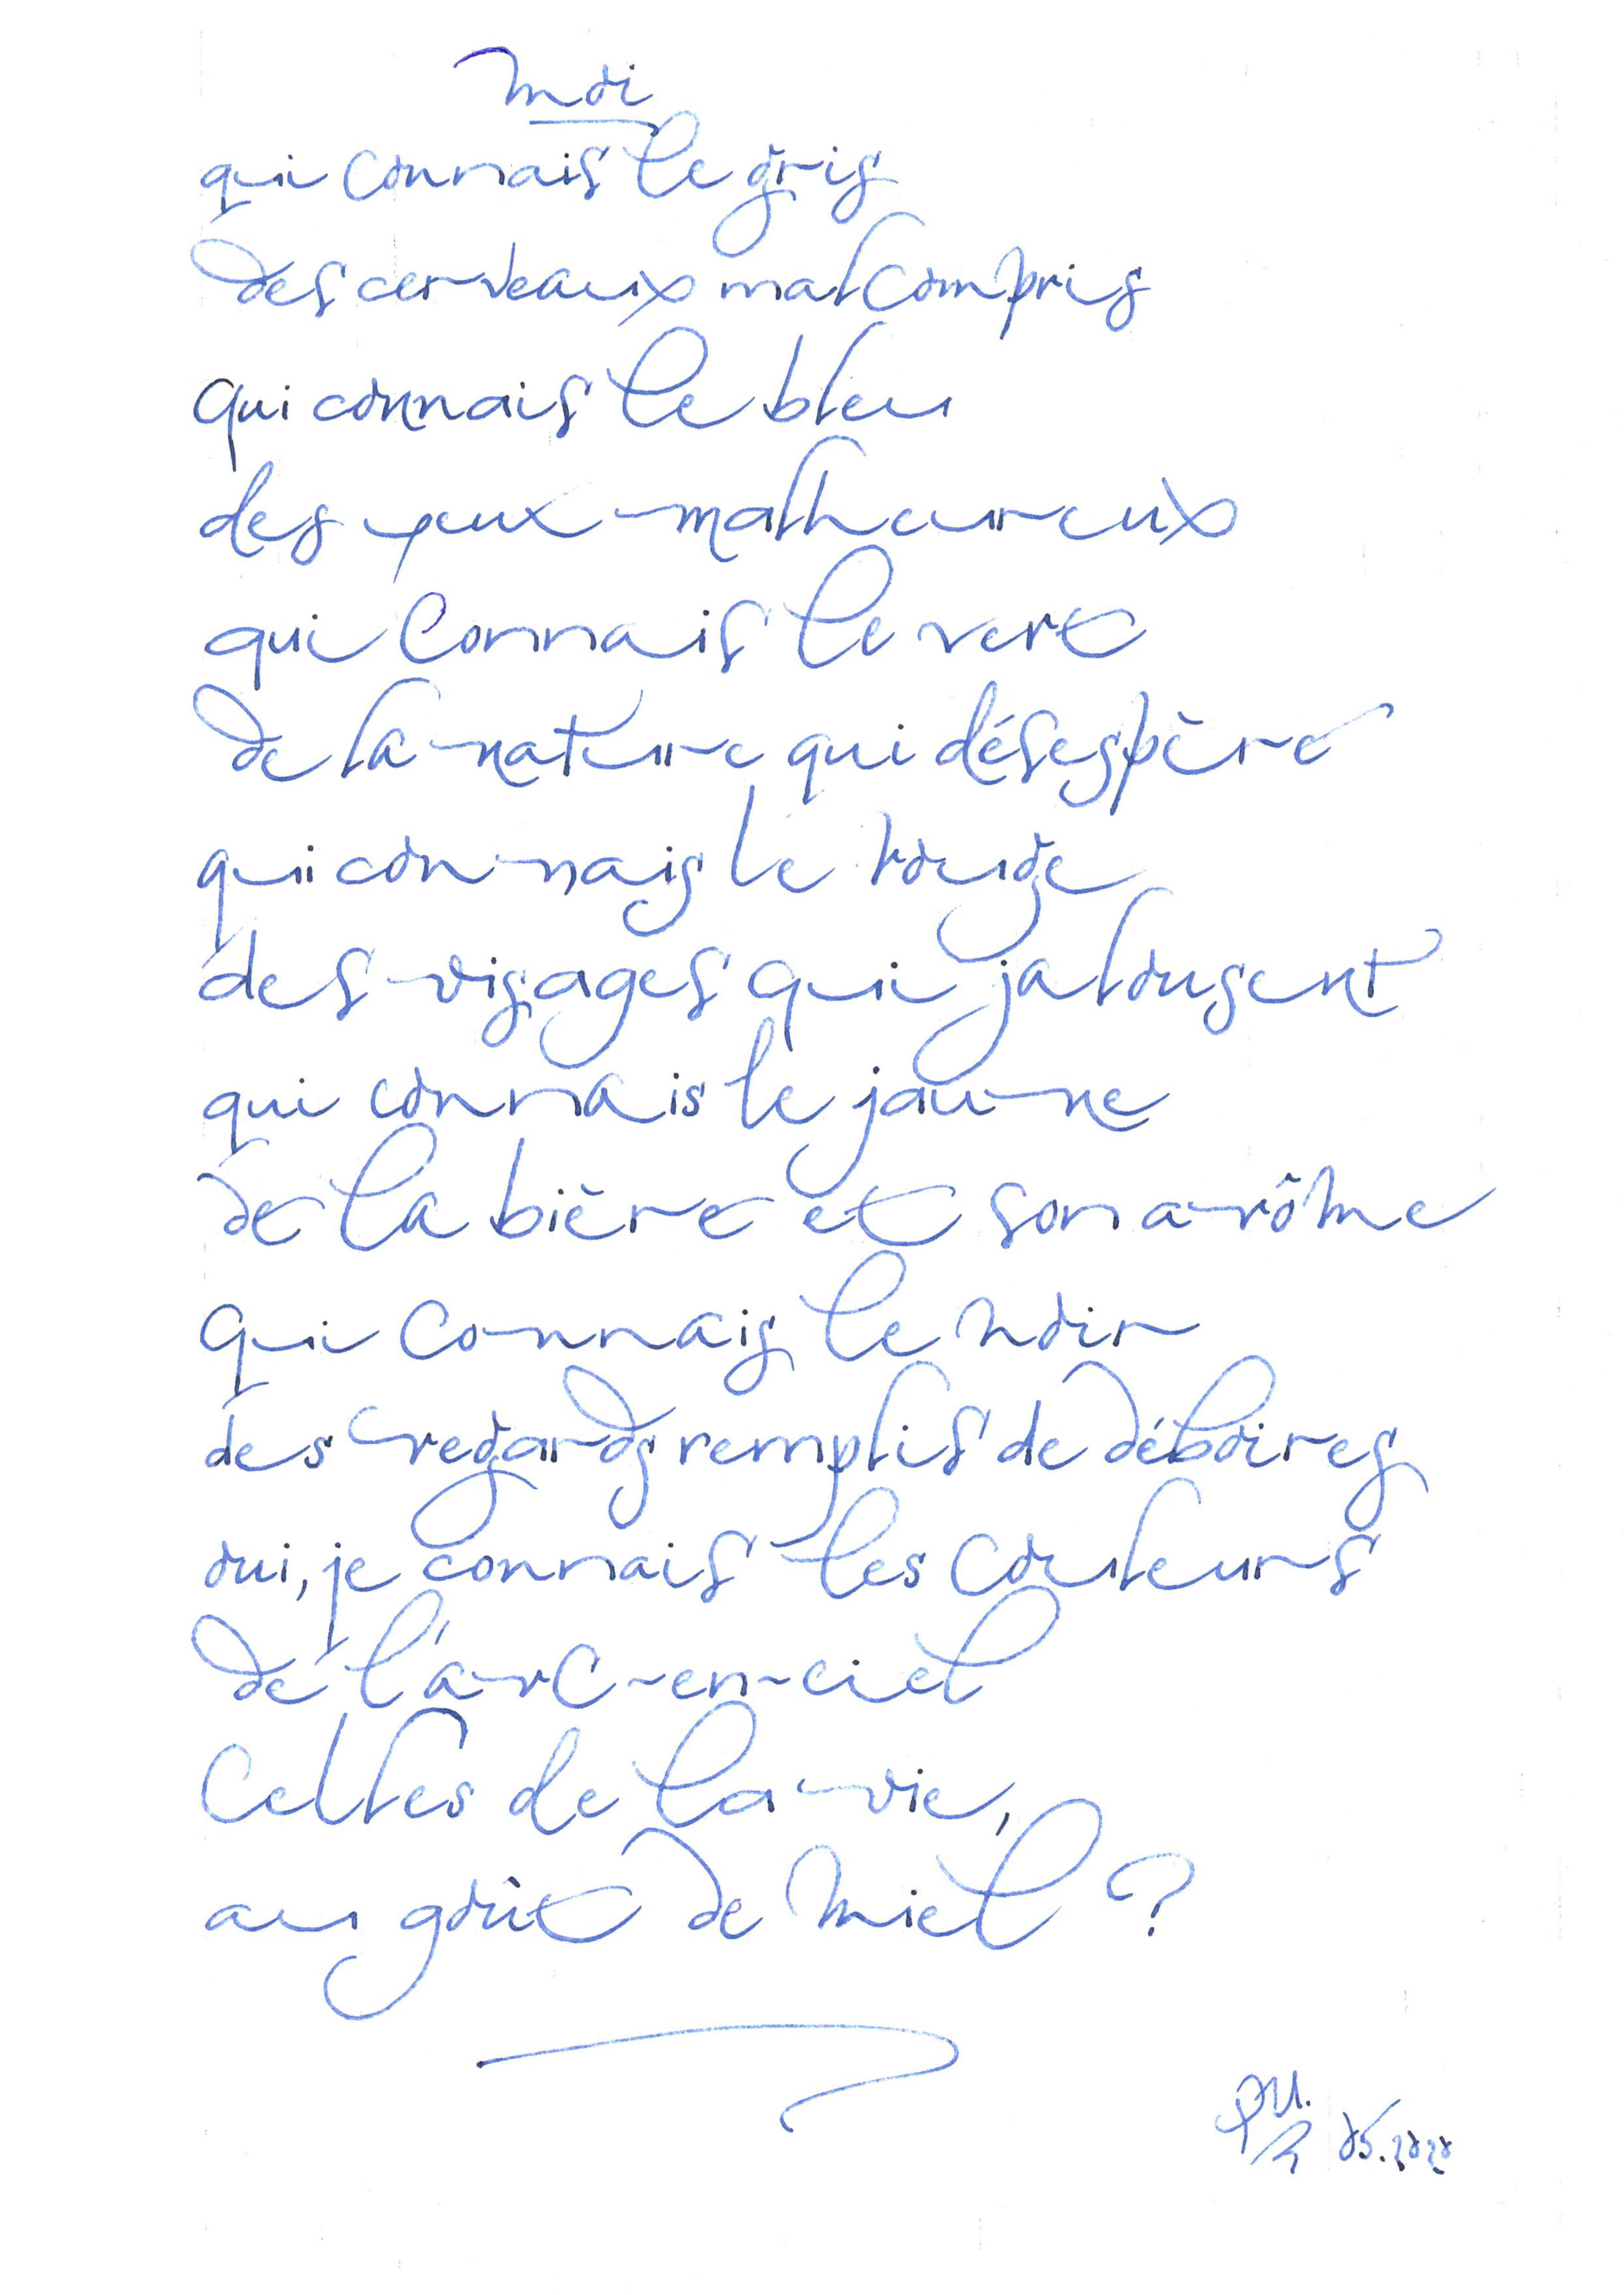 Moi
qui connais le gris
des cerveaux mal compris
qui connais le bleu
des yeux malheureux
qui connais le vert
de la nature qui désespère
qui connais le rouge
des visages qui jalousent
qui connais le jaune
de la bière et son arôme
qui connais le noir
des regards remplis de déboires
oui, je connais les couleurs
de l'arc-en-ciel
celles de la vie,
au goût de miel ?
05.2020